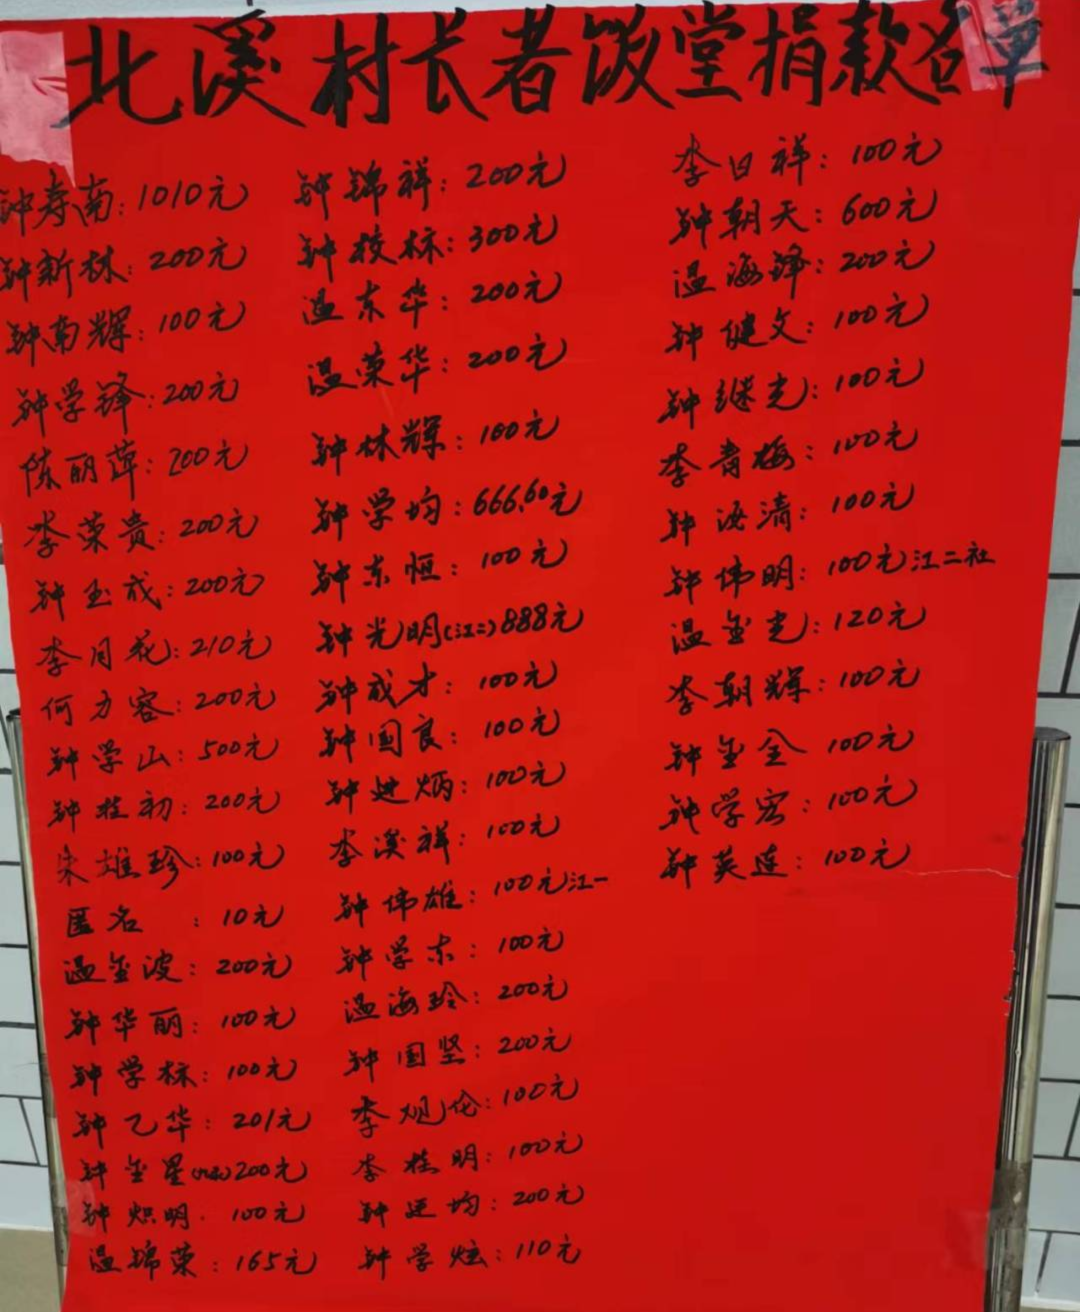 北溪村长者饭堂捐款名单
钟寿南：1010元
钟新林：200元
钟南辉：100元
钟学锋：200元
陈丽萍：200元
李荣贵：200元
钟玉成：200元
李月花：210元
何力容：200元
钟学山：500元
钟桂初：200元
朱雄珍：100元
匿名：10元
温金波：200元
钟华丽：100元
钟学标：100元
钟乙华：201元
钟金星 200元
钟炽明：100元
温锦荣：165元
钟锦祥：200元
钟校标：300元
温东华：200元
温荣华：200元
钟林辉：100元
钟学均：666.60元
钟东恒：100元
钟光明（江二）888元
钟成才：100元
钟国良：100元
钟进炳：100元
李溪祥：100元
钟伟雄：100元江一
钟学东：100元
温海玲：200元
钟国坚：200元
李观伦：100元
李桂明：100元
钟运均：200元
钟学炫：110元
李日祥：100元
钟朝天：600元
温海锋：200元
钟健文：100元
钟继光：100元
李青梅：100元
钟海清：100元
钟伟明：100元江二社
温金光：120元
李朝辉：100元
钟金全 100元
钟学宏：100元
钟英连：100元